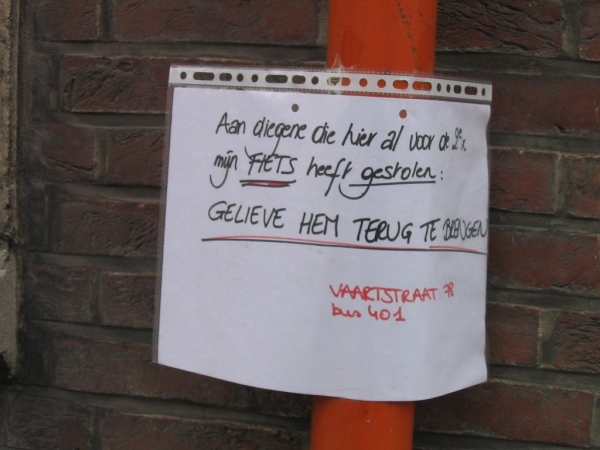 Aan diegene die hier al voor de 2e x
mijn FIETS heeft gestolen:
GELIEVE HEM TERUG TE BRENGEN
VAARTSTRAAT 78
bus 401